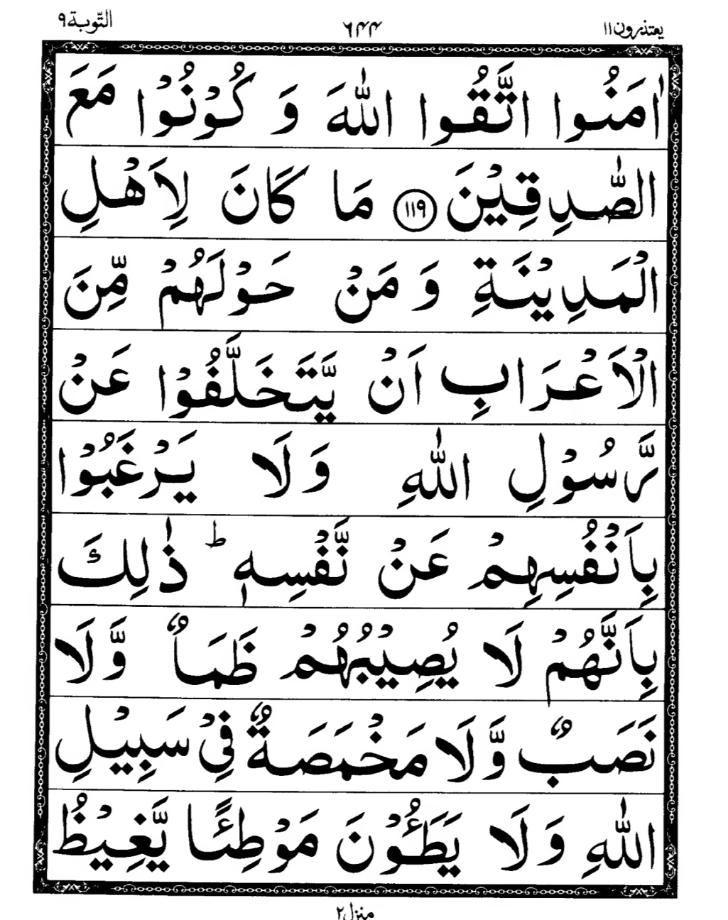 یعتذرون۱۱ ۶۴۴ التّوبة۹
اٰمَنُوا اتَّقُوا اللّٰهَ وَ كُوْنُوْا مَعَ
الصّٰدِقِیْنَ ﴿۱۱۹﴾ مَا كَانَ لِاَهْلِ
الْمَدِیْنَةِ وَ مَنْ حَوْلَهُمْ مِّنَ
الْاَعْرَابِ اَنْ یَّتَخَلَّفُوْا عَنْ
رَّسُوْلِ اللّٰهِ وَ لَا یَرْغَبُوْا
بِاَنْفُسِهِمْ عَنْ نَّفْسِهٖ ؕ ذٰلِكَ
بِاَنَّهُمْ لَا یُصِیْبُهُمْ ظَمَاٌ وَّ لَا
نَصَبٌ وَّ لَا مَخْمَصَةٌ فِیْ سَبِیْلِ
اللّٰهِ وَ لَا یَطَـُٔوْنَ مَوْطِئًا یَّغِیْظُ
منزل۲